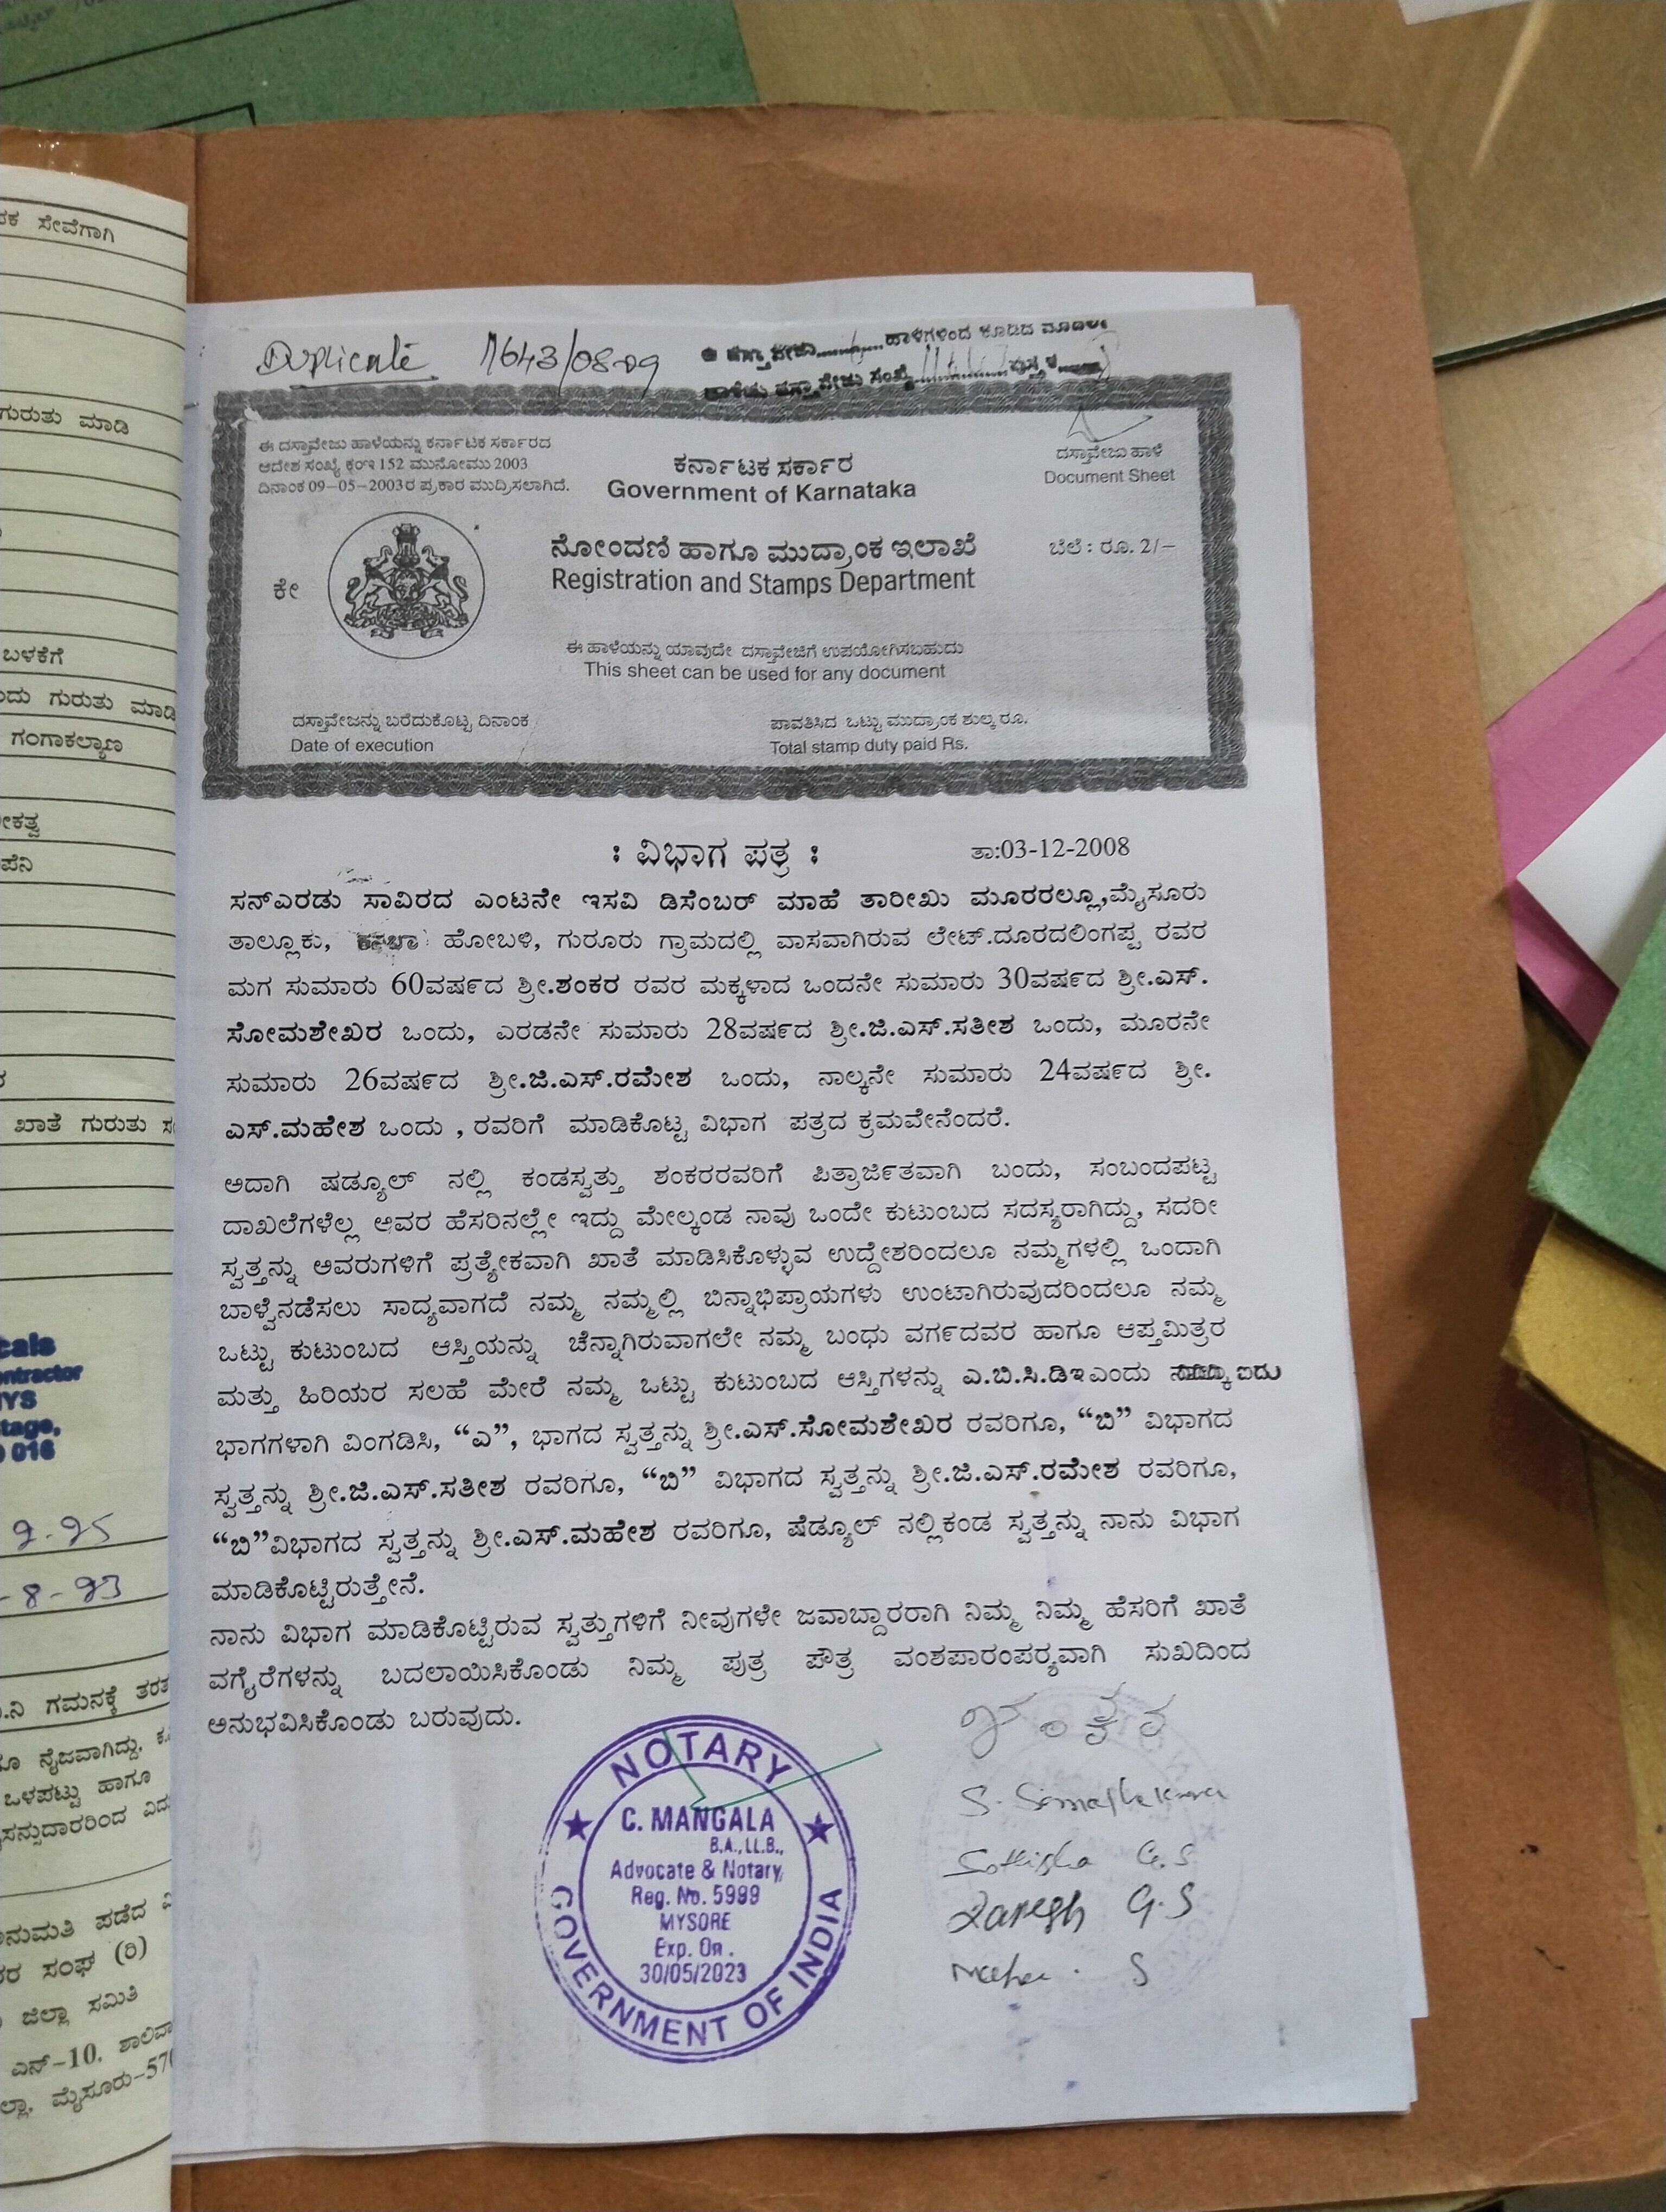 ಪಕ ಸೇವೆಗಾಗಿ
ಗುರುತು ಮಾಡಿ
ಬಳಕೆಗೆ
ಂದು ಗುರುತು ಮಾಡಿ
ಗಂಗಾಕಲ್ಯಾಣ
ೀಕತ್ವ
ಪೆನಿ
ಖಾತೆ ಗುರುತು
cals
ontractor
NYS
tage,
016
9-95
-8-93
.ನಿ ಗಮನಕ್ಕೆ
ನೈಜವಾಗಿದ್ದು,
ಒಳಪಟ್ಟು ಹಾಗೂ
ನುಮತಿ ಪಡೆದ
ರ ಸಂಘ (ರಿ)
ಜಿಲ್ಲಾ ಸಮಿತಿ
ಎನ್-10,
ಲ್ಲಾ, ಮೈಸೂರು-570
Duplicate 1643/08-09
ದಸ್ತಾವೇಜು ಹಾಳೆಗಳಿಂದ ಕೂಡಿದ ಮೊದಲ
ಹಾಳೆಯ ದಸ್ತಾವೇಜು ಸಂಖ್ಯೆ
ಈ ದಸ್ತಾವೇಜು ಹಾಳೆಯನ್ನು ಕರ್ನಾಟಕ ಸರ್ಕಾರದ
ಆದೇಶ ಸಂಖ್ಯೆ ಕಂಇ 152 ಮುನೋಮು 2003
ದಿನಾಂಕ 09-05-2003ರ ಪ್ರಕಾರ ಮುದ್ರಿಸಲಾಗಿದೆ.
ಕರ್ನಾಟಕ ಸರ್ಕಾರ
Government of Karnataka
ದಸ್ತಾವೇಜು ಹಾಳೆ
Document Sheet
ಕೇ
ನೋಂದಣಿ ಹಾಗೂ ಮುದ್ರಾಂಕ ಇಲಾಖೆ
Registration and Stamps Department
ಬೆಲೆ : ರೂ. 2/-
ಈ ಹಾಳೆಯನ್ನು ಯಾವುದೇ ದಸ್ತಾವೇಜಿಗೆ ಉಪಯೋಗಿಸಬಹುದು
This sheet can be used for any document
ದಸ್ತಾವೇಜನ್ನು ಬರೆದುಕೊಟ್ಟ ದಿನಾಂಕ
Date of execution
ಪಾವತಿಸಿದ ಒಟ್ಟು ಮುದ್ರಾಂಕ ಶುಲ್ಕ ರೂ.
Total stamp duty paid Rs.
: ವಿಭಾಗ ಪತ್ರ : ತಾ:03-12-2008
ಸನ್ಎರಡು ಸಾವಿರದ ಎಂಟನೇ ಇಸವಿ ಡಿಸೆಂಬರ್ ಮಾಹೆ ತಾರೀಖು ಮೂರರಲ್ಲೂ,ಮೈಸೂರು
ತಾಲ್ಲೂಕು, ಕಸಬಾ ಹೋಬಳಿ, ಗುರೂರು ಗ್ರಾಮದಲ್ಲಿ ವಾಸವಾಗಿರುವ ಲೇಟ್.ದೂರದಲಿಂಗಪ್ಪ ರವರ
ಮಗ ಸುಮಾರು 60ವರ್ಷದ ಶ್ರೀ.ಶಂಕರ ರವರ ಮಕ್ಕಳಾದ ಒಂದನೇ ಸುಮಾರು 30ವರ್ಷದ ಶ್ರೀ.ಎಸ್.
ಸೋಮಶೇಖರ ಒಂದು, ಎರಡನೇ ಸುಮಾರು 28ವರ್ಷದ ಶ್ರೀ.ಜಿ.ಎಸ್.ಸತೀಶ ಒಂದು, ಮೂರನೇ
ಸುಮಾರು 26ವರ್ಷದ ಶ್ರೀ.ಜಿ.ಎಸ್.ರಮೇಶ ಒಂದು, ನಾಲ್ಕನೇ ಸುಮಾರು 24ವರ್ಷದ ಶ್ರೀ.
ಎಸ್.ಮಹೇಶ ಒಂದು , ರವರಿಗೆ ಮಾಡಿಕೊಟ್ಟ ವಿಭಾಗ ಪತ್ರದ ಕ್ರಮವೇನೆಂದರೆ.
ಅದಾಗಿ ಷಡ್ಯೂಲ್ ನಲ್ಲಿ ಕಂಡಸ್ವತ್ತು ಶಂಕರರವರಿಗೆ ಪಿತ್ರಾರ್ಜಿತವಾಗಿ ಬಂದು, ಸಂಬಂದಪಟ್ಟ
ದಾಖಲೆಗಳೆಲ್ಲ ಅವರ ಹೆಸರಿನಲ್ಲೇ ಇದ್ದು ಮೇಲ್ಕಂಡ ನಾವು ಒಂದೇ ಕುಟುಂಬದ ಸದಸ್ಯರಾಗಿದ್ದು, ಸದರೀ
ಸ್ವತ್ತನ್ನು ಅವರುಗಳಿಗೆ ಪ್ರತ್ಯೇಕವಾಗಿ ಖಾತೆ ಮಾಡಿಸಿಕೊಳ್ಳುವ ಉದ್ದೇಶರಿಂದಲೂ ನಮ್ಮಗಳಲ್ಲಿ ಒಂದಾಗಿ
ಬಾಳ್ವೆನಡೆಸಲು ಸಾದ್ಯವಾಗದೆ ನಮ್ಮ ನಮ್ಮಲ್ಲಿ ಬಿನ್ನಾಭಿಪ್ರಾಯಗಳು ಉಂಟಾಗಿರುವುದರಿಂದಲೂ ನಮ್ಮ
ಒಟ್ಟು ಕುಟುಂಬದ ಆಸ್ತಿಯನ್ನು ಚೆನ್ನಾಗಿರುವಾಗಲೇ ನಮ್ಮ ಬಂಧು ವರ್ಗದವರ ಹಾಗೂ ಆಪ್ತಮಿತ್ರರ
ಮತ್ತು ಹಿರಿಯರ ಸಲಹೆ ಮೇರೆ ನಮ್ಮ ಒಟ್ಟು ಕುಟುಂಬದ ಆಸ್ತಿಗಳನ್ನು ಎ.ಬಿ.ಸಿ.ಡಿಇಎಂದು ಐದು
ಭಾಗಗಳಾಗಿ ವಿಂಗಡಿಸಿ, “ಎ”, ಭಾಗದ ಸ್ವತ್ತನ್ನು ಶ್ರೀ.ಎಸ್.ಸೋಮಶೇಖರ ರವರಿಗೂ, “ಬಿ” ವಿಭಾಗದ
ಸ್ವತ್ತನ್ನು ಶ್ರೀ.ಜಿ.ಎಸ್.ಸತೀಶ ರವರಿಗೂ, “ಬಿ” ವಿಭಾಗದ ಸ್ವತ್ತನ್ನು ಶ್ರೀ.ಜಿ.ಎಸ್.ರಮೇಶ ರವರಿಗೂ,
“ಬಿ”ವಿಭಾಗದ ಸ್ವತ್ತನ್ನು ಶ್ರೀ.ಎಸ್.ಮಹೇಶ ರವರಿಗೂ, ಷೆಡ್ಯೂಲ್ ನಲ್ಲಿಕಂಡ ಸ್ವತ್ತನ್ನು ನಾನು ವಿಭಾಗ
ಮಾಡಿಕೊಟ್ಟಿರುತ್ತೇನೆ.
ನಾನು ವಿಭಾಗ ಮಾಡಿಕೊಟ್ಟಿರುವ ಸ್ವತ್ತುಗಳಿಗೆ ನೀವುಗಳೇ ಜವಾಬ್ದಾರರಾಗಿ ನಿಮ್ಮ ನಿಮ್ಮ ಹೆಸರಿಗೆ ಖಾತೆ
ವಗೈರೆಗಳನ್ನು ಬದಲಾಯಿಸಿಕೊಂಡು ನಿಮ್ಮ ಪುತ್ರ ಪೌತ್ರ ವಂಶಪಾರಂಪರ್‍ಯವಾಗಿ ಸುಖದಿಂದ
ಅನುಭವಿಸಿಕೊಂಡು ಬರುವುದು.
NOTARY
C. MANGALA
B.A., LL.B.,
Advocate & Notary
Reg. No. 5999
MYSORE
Exp. On.
30/05/2023
GOVERNMENT OF INDIA
ಶಂಕರ
S. Somashekara
Sathisha G.S
Ramesh G.S
Mahesh. S